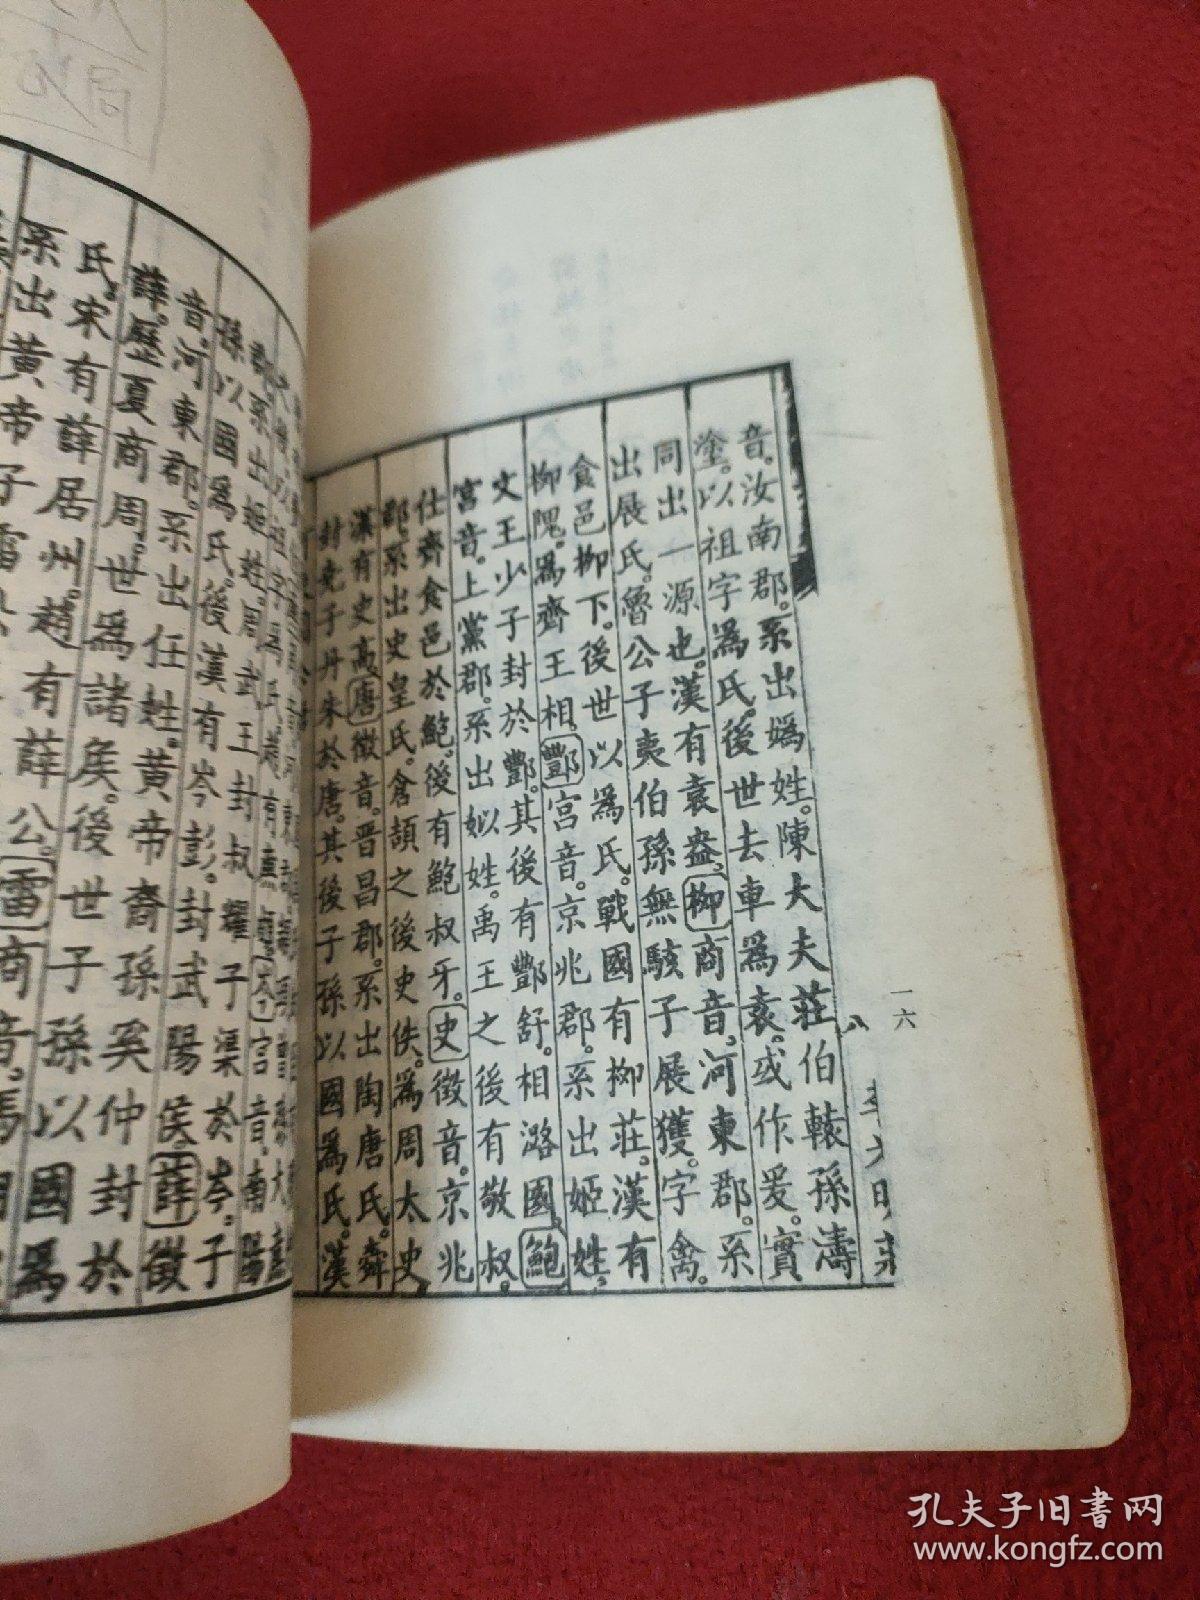 音。汝南郡。系出嬀姓。陳大夫莊伯轅孫濤
塗。以祖字爲氏。後世去車爲袁。或作爰。實
同出一源也。漢有袁盎。柳商音。河東郡。系
出展氏。魯公子夷伯孫無駭子展獲。字禽。
食邑柳下。後世以爲氏。戰國有柳莊。漢有
柳隗。爲齊王相。酆宮音。京兆郡。系出姬姓。
文王少子封於酆。其後有酆舒。相潞國。鮑
宮音。上黨郡。系出姒姓。禹王之後有敬叔。
仕齊食邑於鮑。後有鮑叔牙。史徵音。京兆
郡。系出史皇氏。倉頡之後史佚。爲周太史。
漢有史高。唐徵音。晋昌郡。系出陶唐氏。舜
封堯子丹朱於唐。其後子孫以國爲氏。漢
八
一六
郡。系出姬姓。周武王封叔耀子渠於岑。子
孫以國爲氏。後漢有岑彭。封武陽侯。薛徵
音。河東郡。系出任姓。黄帝裔孫奚仲封於
薛。歷夏商周。世爲諸侯。後世子孫以國爲
氏。宋有薛居州。趙有薛公。雷商音。馮
系出黄帝子雷
局
孔夫子旧書网
www.kongfz.com